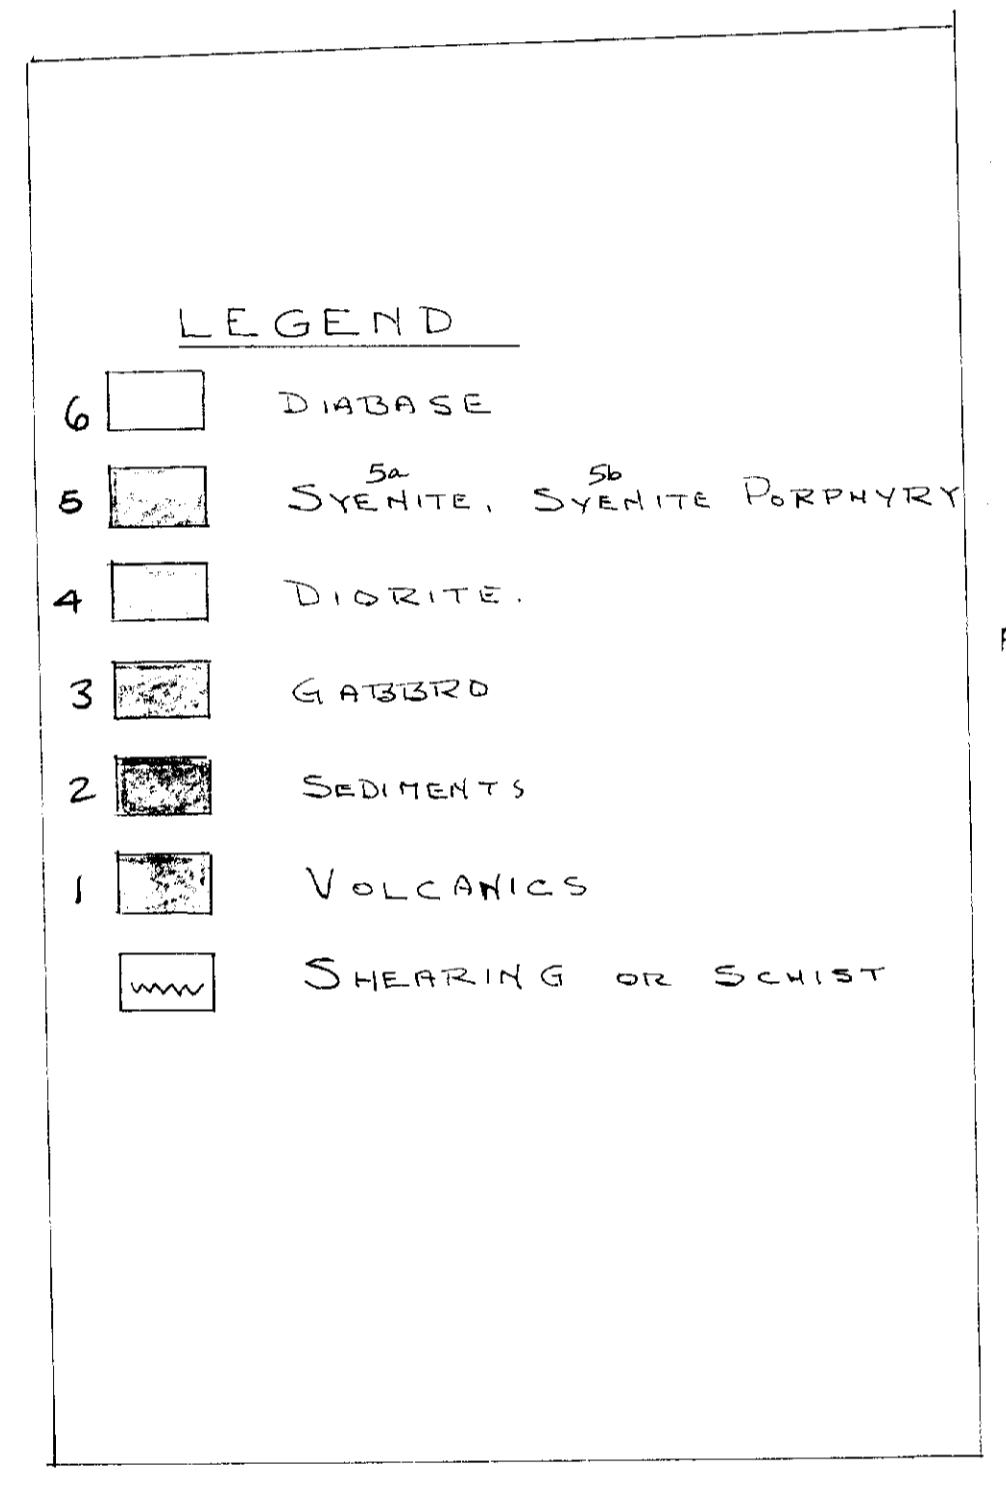 LEGEND
6 DIABASE
5a 5b
5 SYENITE, SYENITE PORPHYRY
4 DIORITE.
3 GABBRO
2 SEDIMENTS
1 VOLCANICS
SHEARING OR SCHIST